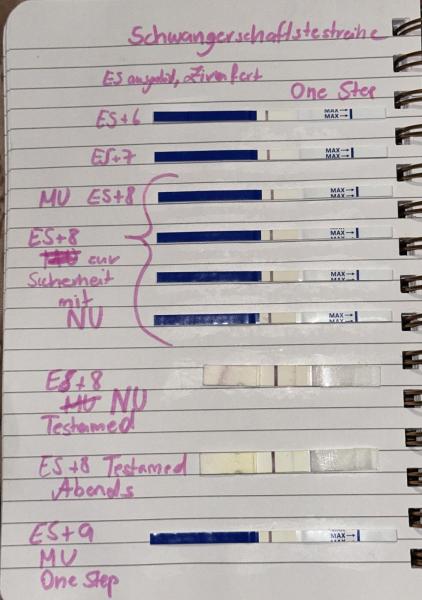 Schwangerschaftstestreihe
One Step
ES+6
MAX→
MAX→
ES+7
MAX→
MAX→
MU ES+8
MAX→
MAX→
ES+8
zur
Sicherheit
mit
NU
MAX→
MAX→
MAX→
MAX→
MAX→
MAX→
ES+8
MU NU
Testamed
ES+8 Testamed
Abends
ES+9
MU
One Step
MAX→
MAX→